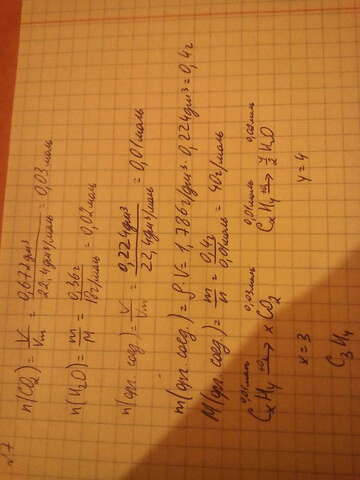 n(CO₂) = V/Vm = 0,672дм³/22,4дм³/моль = 0,03моль
n(H₂O) = m/M = 0,36г/18г/моль = 0,02моль
n(орг. соед.) = V/Vm = 0,224дм³/22,4дм³/моль = 0,01моль
m(орг. соед.) = ρ·V = 1,786г/дм³·0,224дм³ = 0,4г
M(орг. соед.) = m/n = 0,4г/0,01моль = 40г/моль
0,01моль 0,03моль 0,01моль 0,02моль
CxHy →(+O₂) xCO₂ CxHy →(+O₂) y/2 H₂O
x=3 y=4
C₃H₄